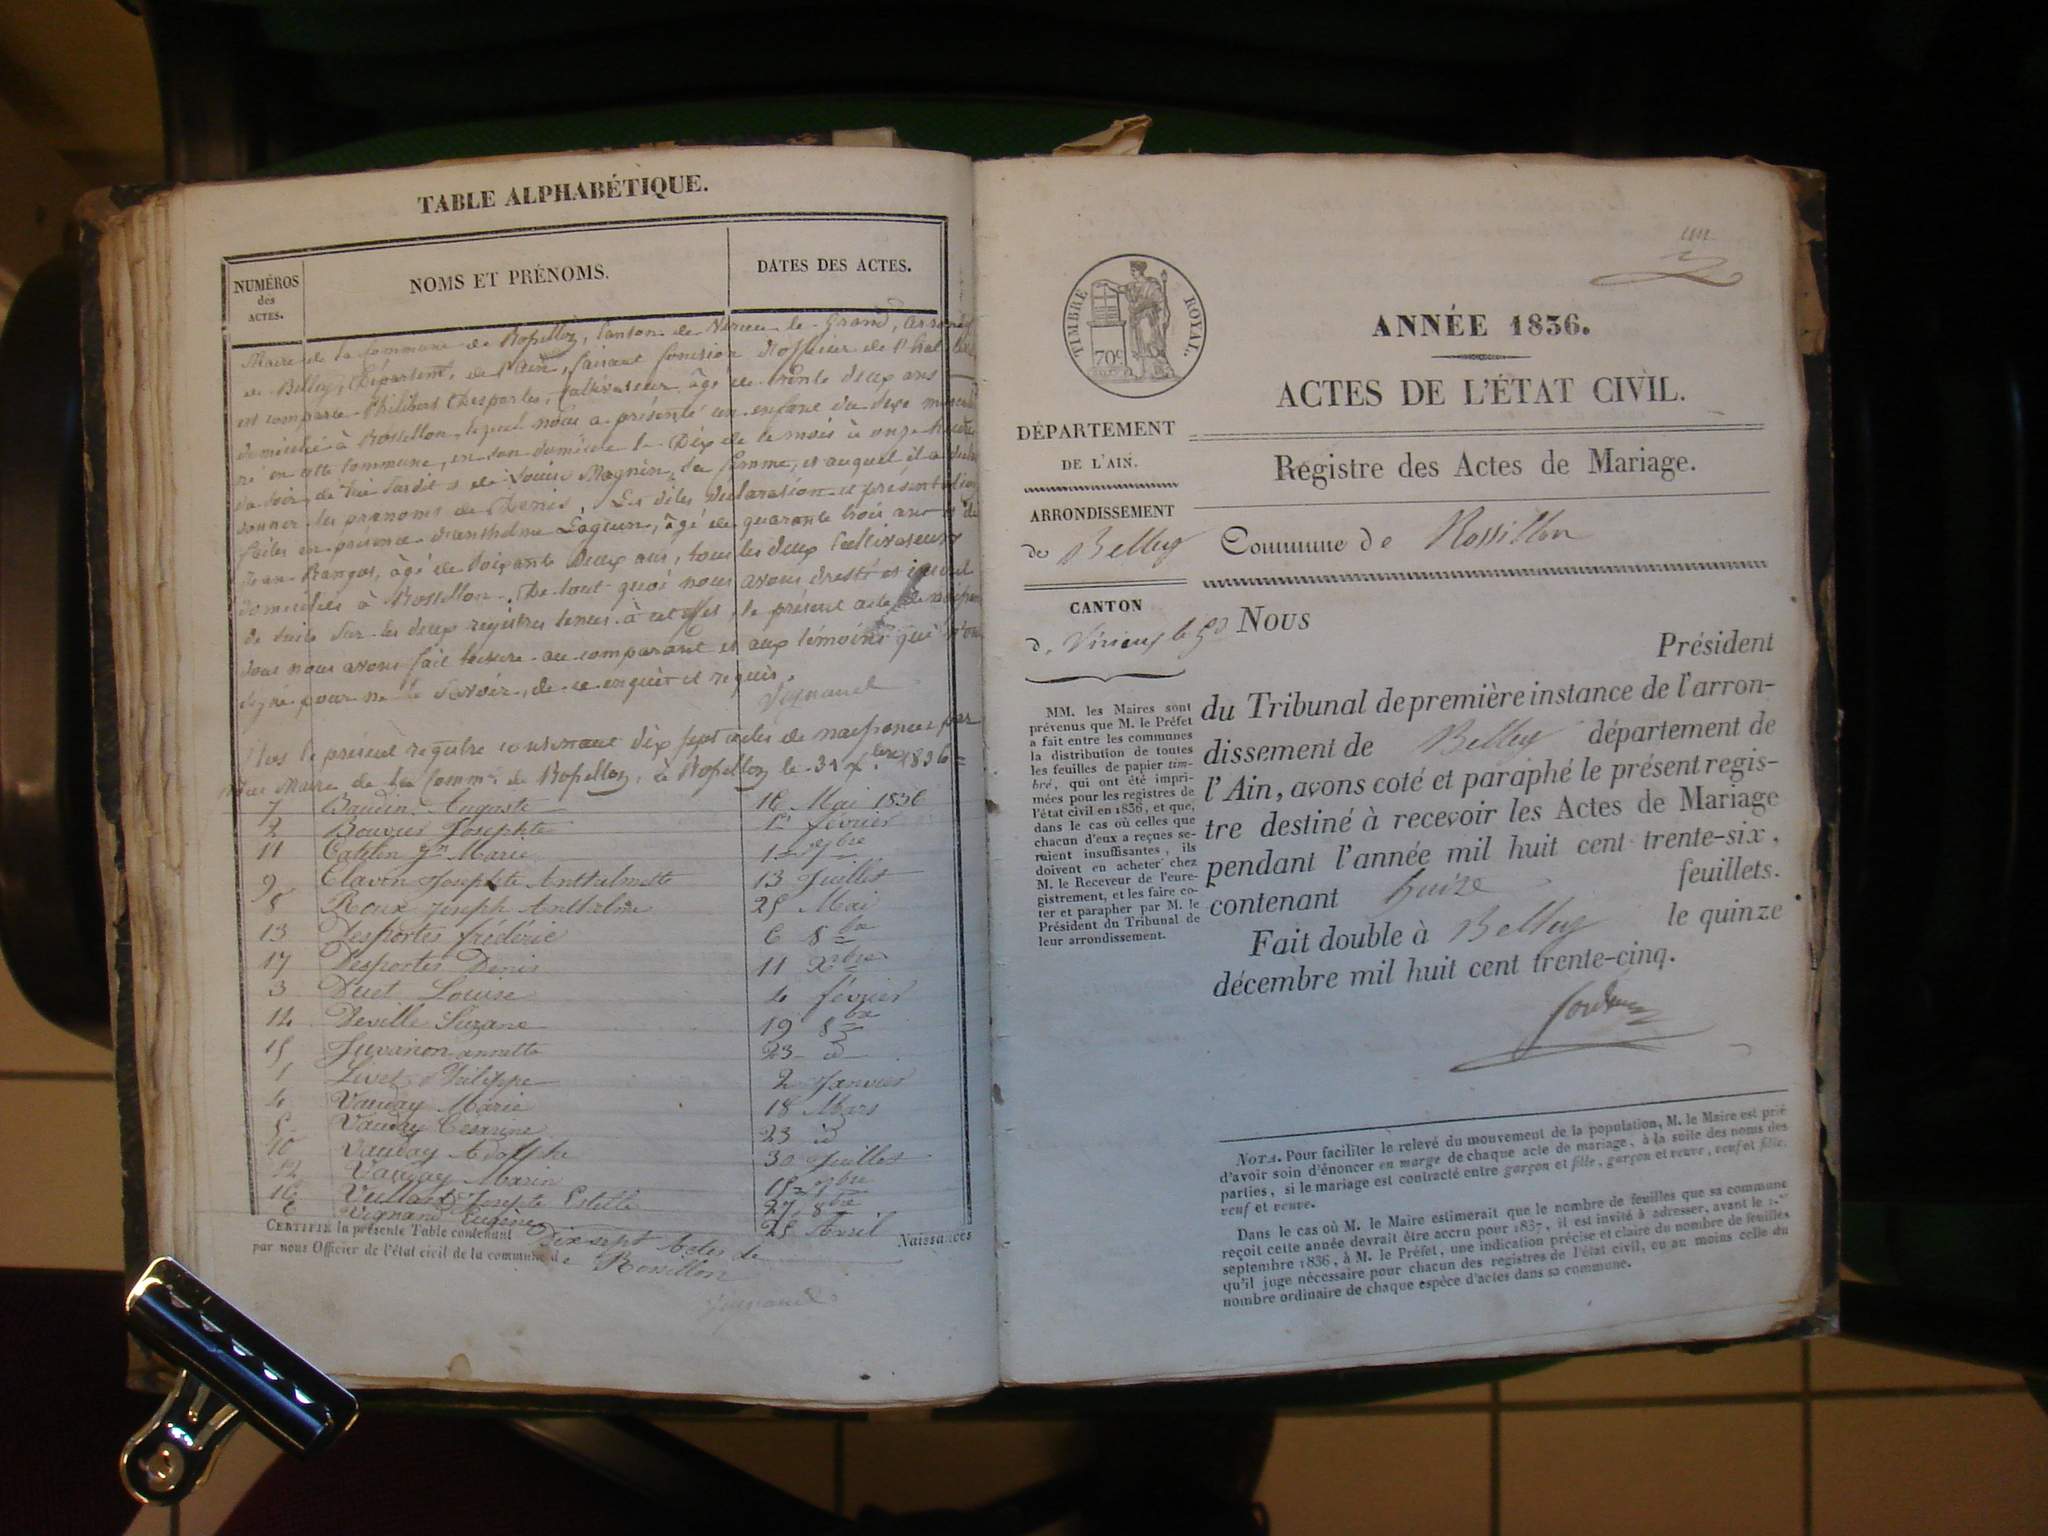 TABLE ALPHABÉTIQUE.
NUMÉROS
des
ACTES.
NOMS ET PRÉNOMS.
DATES DES ACTES.
Maire de la commune de Rossillon, Canton de Virieu le Grand, arrond
de Belley, Département de l'ain, faisant fonction d'officier de l'état
est comparu Philibert Desportes, Cultivateur âgé de trente deux ans
domicilié à Rossillon, lequel nous a présenté un enfant du sexe
né en cette commune, en son domicile le Dix de ce mois à onze heures
du soir, de lui susdit et de Louise Magnin, sa femme, et auquel il a
donner les prenoms de Denis. Les dites déclaration et présentation
faites en présence d'anthelme âgé de quarante trois ans et de
Jean âgé de soixante deux ans, tous les deux Cultivateurs
domiciliés à Rossillon. De tout quoi nous avons dressé et
de suite sur les deux registres tenus à cet effet, le présent acte de
dont nous avons fait lecture au comparant et aux témoins qui n'ont
signé pour ne le savoir, de ce enquis et requis.
Vignand
Clos le présent registre contenant dix sept actes de naissances par
nous Maire de la Comme de Rossillon, à Rossillon le 31 Xbre 1836
7 Baudin Auguste 16 Mai 1836
2 Bouvier Josephte 1er février
11 Catelin Jn Marie 1er 7bre
9 Clavin Josephte Anthelmette 13 Juillet
8 Roux Joseph Anthelme 25 Mai
13 Desportes frédéric 6 8bre
17 Desportes Denis 11 Xbre
3 Duet Louise 4 février
14 Deville Suzane 19 8bre
15 Juvanon annette 23 id
1 Livet Philippe 2 Janvier
4 Vauday Marie 18 Mars
5 Vauday Cesarine 23 id
10 Vauday Adolphe 30 Juillet
12 Vauday Marin 15 7bre
16 Josephte Estelle 27 8bre
6 Vignand Eugène 25 Avril
CERTIFIE la présente Table contenant Dix sept Actes de Naissances
par nous Officier de l'état civil de la commune de Rossillon
Vignand
un
TIMBRE ROYAL.
70c
ANNÉE 1836.
ACTES DE L'ÉTAT CIVIL.
DÉPARTEMENT
DE L'AIN.
Registre des Actes de Mariage.
ARRONDISSEMENT
de Belley
Commune de Rossillon
CANTON
de Virieux le Gd
MM. les Maires sont
prévenus que M. le Préfet
a fait entre les communes
la distribution de toutes
les feuilles de papier tim-
bré, qui ont été impri-
mées pour les registres de
l'état civil en 1836, et que,
dans le cas où celles que
chacun d'eux a reçues se-
raient insuffisantes, ils
doivent en acheter chez
M. le Receveur de l'enre-
gistrement, et les faire co-
ter et parapher par M. le
Président du Tribunal de
leur arrondissement.
Nous
Président
du Tribunal de première instance de l'arron-
dissement de Belley département de
l'Ain, avons coté et paraphé le présent regis-
tre destiné à recevoir les Actes de Mariage
pendant l'année mil huit cent trente-six,
contenant feuillets.
Fait double à Belley le quinze
décembre mil huit cent trente-cinq.
NOTA. Pour faciliter le relevé du mouvement de la population, M. le Maire est prié
d'avoir soin d'énoncer en marge de chaque acte de mariage, à la suite des noms des
parties, si le mariage est contracté entre garçon et fille, garçon et veuve, veuf et fille,
veuf et veuve.
Dans le cas où M. le Maire estimerait que le nombre de feuilles que sa commune
reçoit cette année devrait être accru pour 1837, il est invité à adresser, avant le 1.er
septembre 1836, à M. le Préfet, une indication précise et claire du nombre de feuilles
qu'il juge nécessaire pour chacun des registres de l'état civil, ou au moins celle du
nombre ordinaire de chaque espèce d'actes dans sa commune.